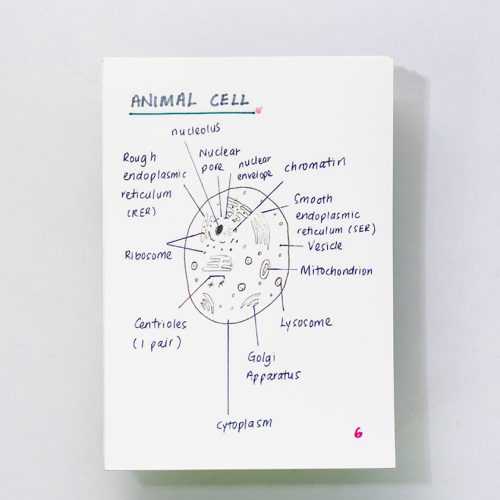 ANIMAL CELL
nucleolus
Rough
endoplasmic
reticulum
(RER)
Nuclear
pore
nuclear
envelope
chromatin
Smooth
endoplasmic
reticulum (SER)
Vesicle
Ribosome
Mitochondrion
Centrioles
(1 pair)
Lysosome
Golgi
Apparatus
cytoplasm
6